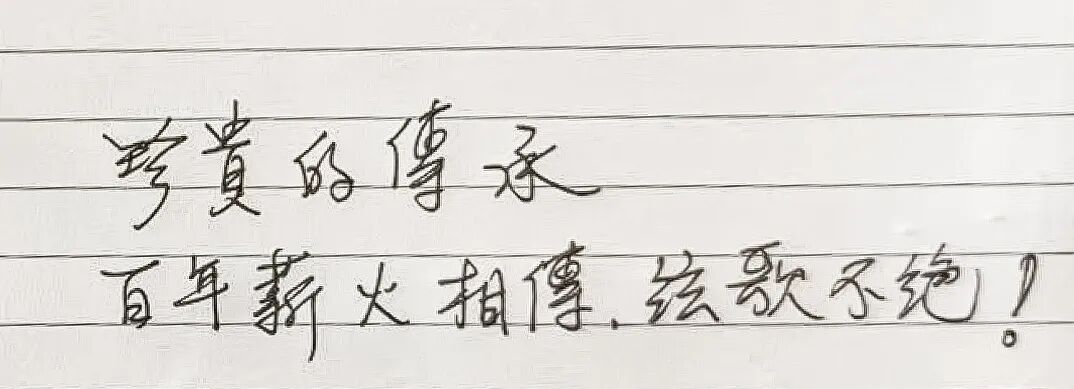 珍貴的傳承
百年薪火相傳.弦歌不绝!